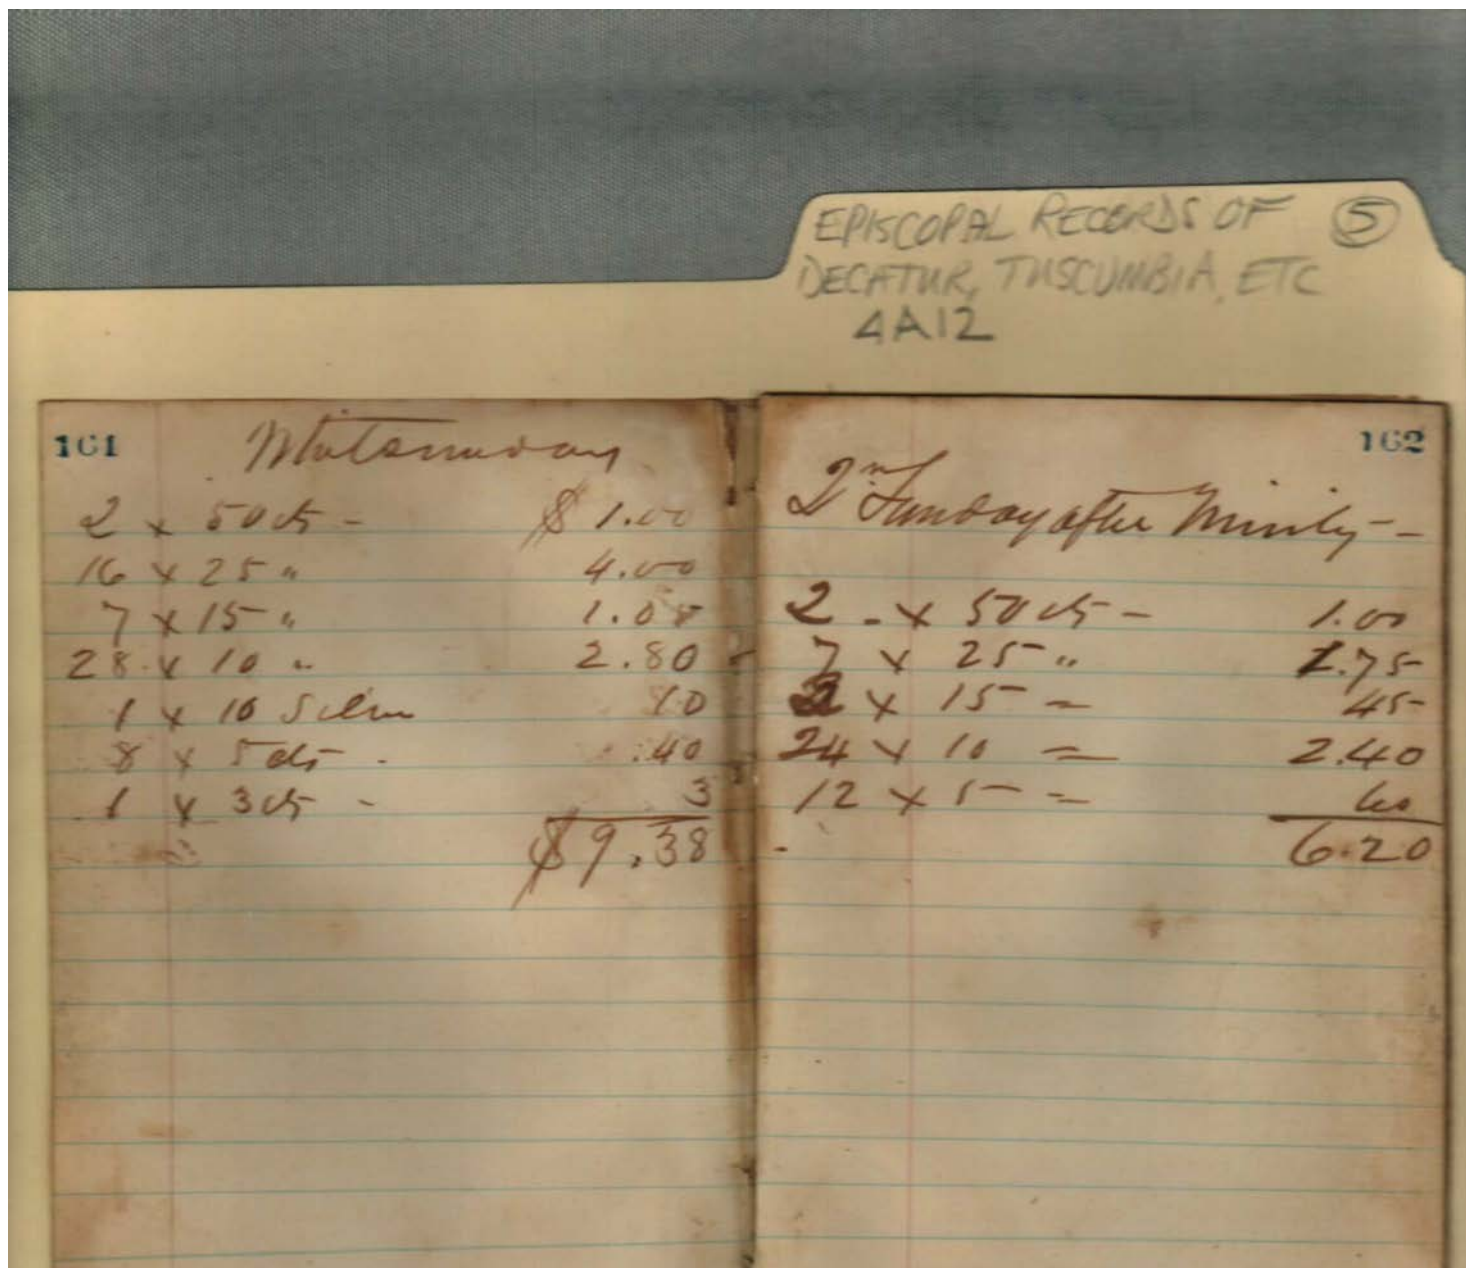 EPISCOPAL RECORDS OF 5
DECATUR, TUSCUMBIA, ETC
4A12
161
Whitsunday
2 x 50 cts - $ 1.00
16 x 25 " 4.00
7 x 15 " 1.05
28 x 10 " 2.80
1 x 10 Silver 10
8 x 5 cts - .40
1 x 3 cts - 3
$9.38
162
2nd Sunday after Trinity -
2 - x 50 cts - 1.00
7 x 25 " 1.75
x 15 = 45
24 x 10 = 2.40
12 x 5 = 60
6.20